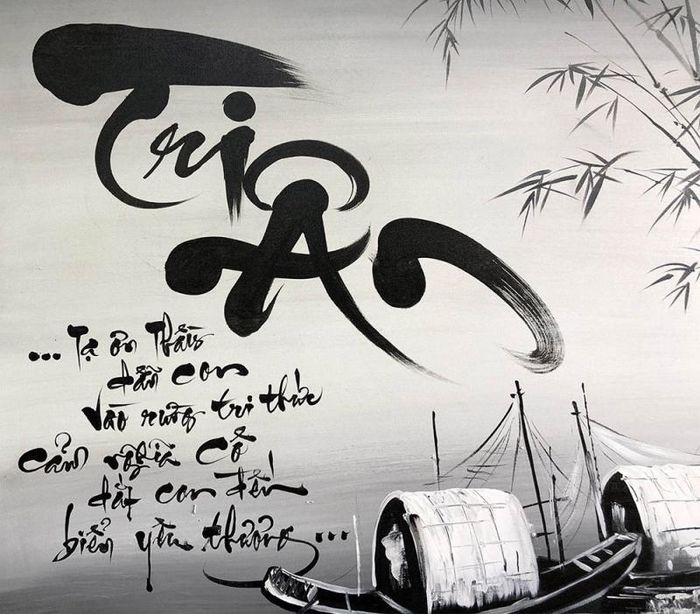 Tri
Ân
...Tạ ơn Thầy
dẫn con
vào rừng tri thức
cảm nghĩa Cô
dắt con đến
biển yêu thương...